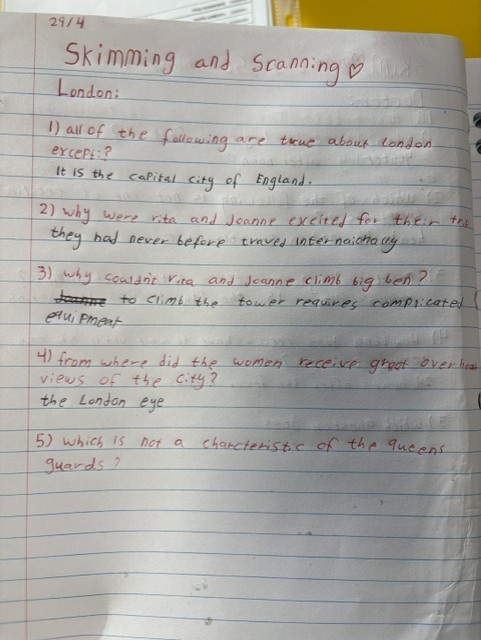 29/4
Skimming and Scanning ♡
London:
1) all of the following are true about London
except:?
It is the capital city of England.
2) why were rita and Joanne excited for their
they had never before traved internaichonally
3) why couldn't rita and Joanne climb big ben?
Joanne to climb the tower requires complicated
equipment
4) from where did the women receive great overhead
views of the city?
the London eye
5) which is not a charcteristic of the queens
guards?